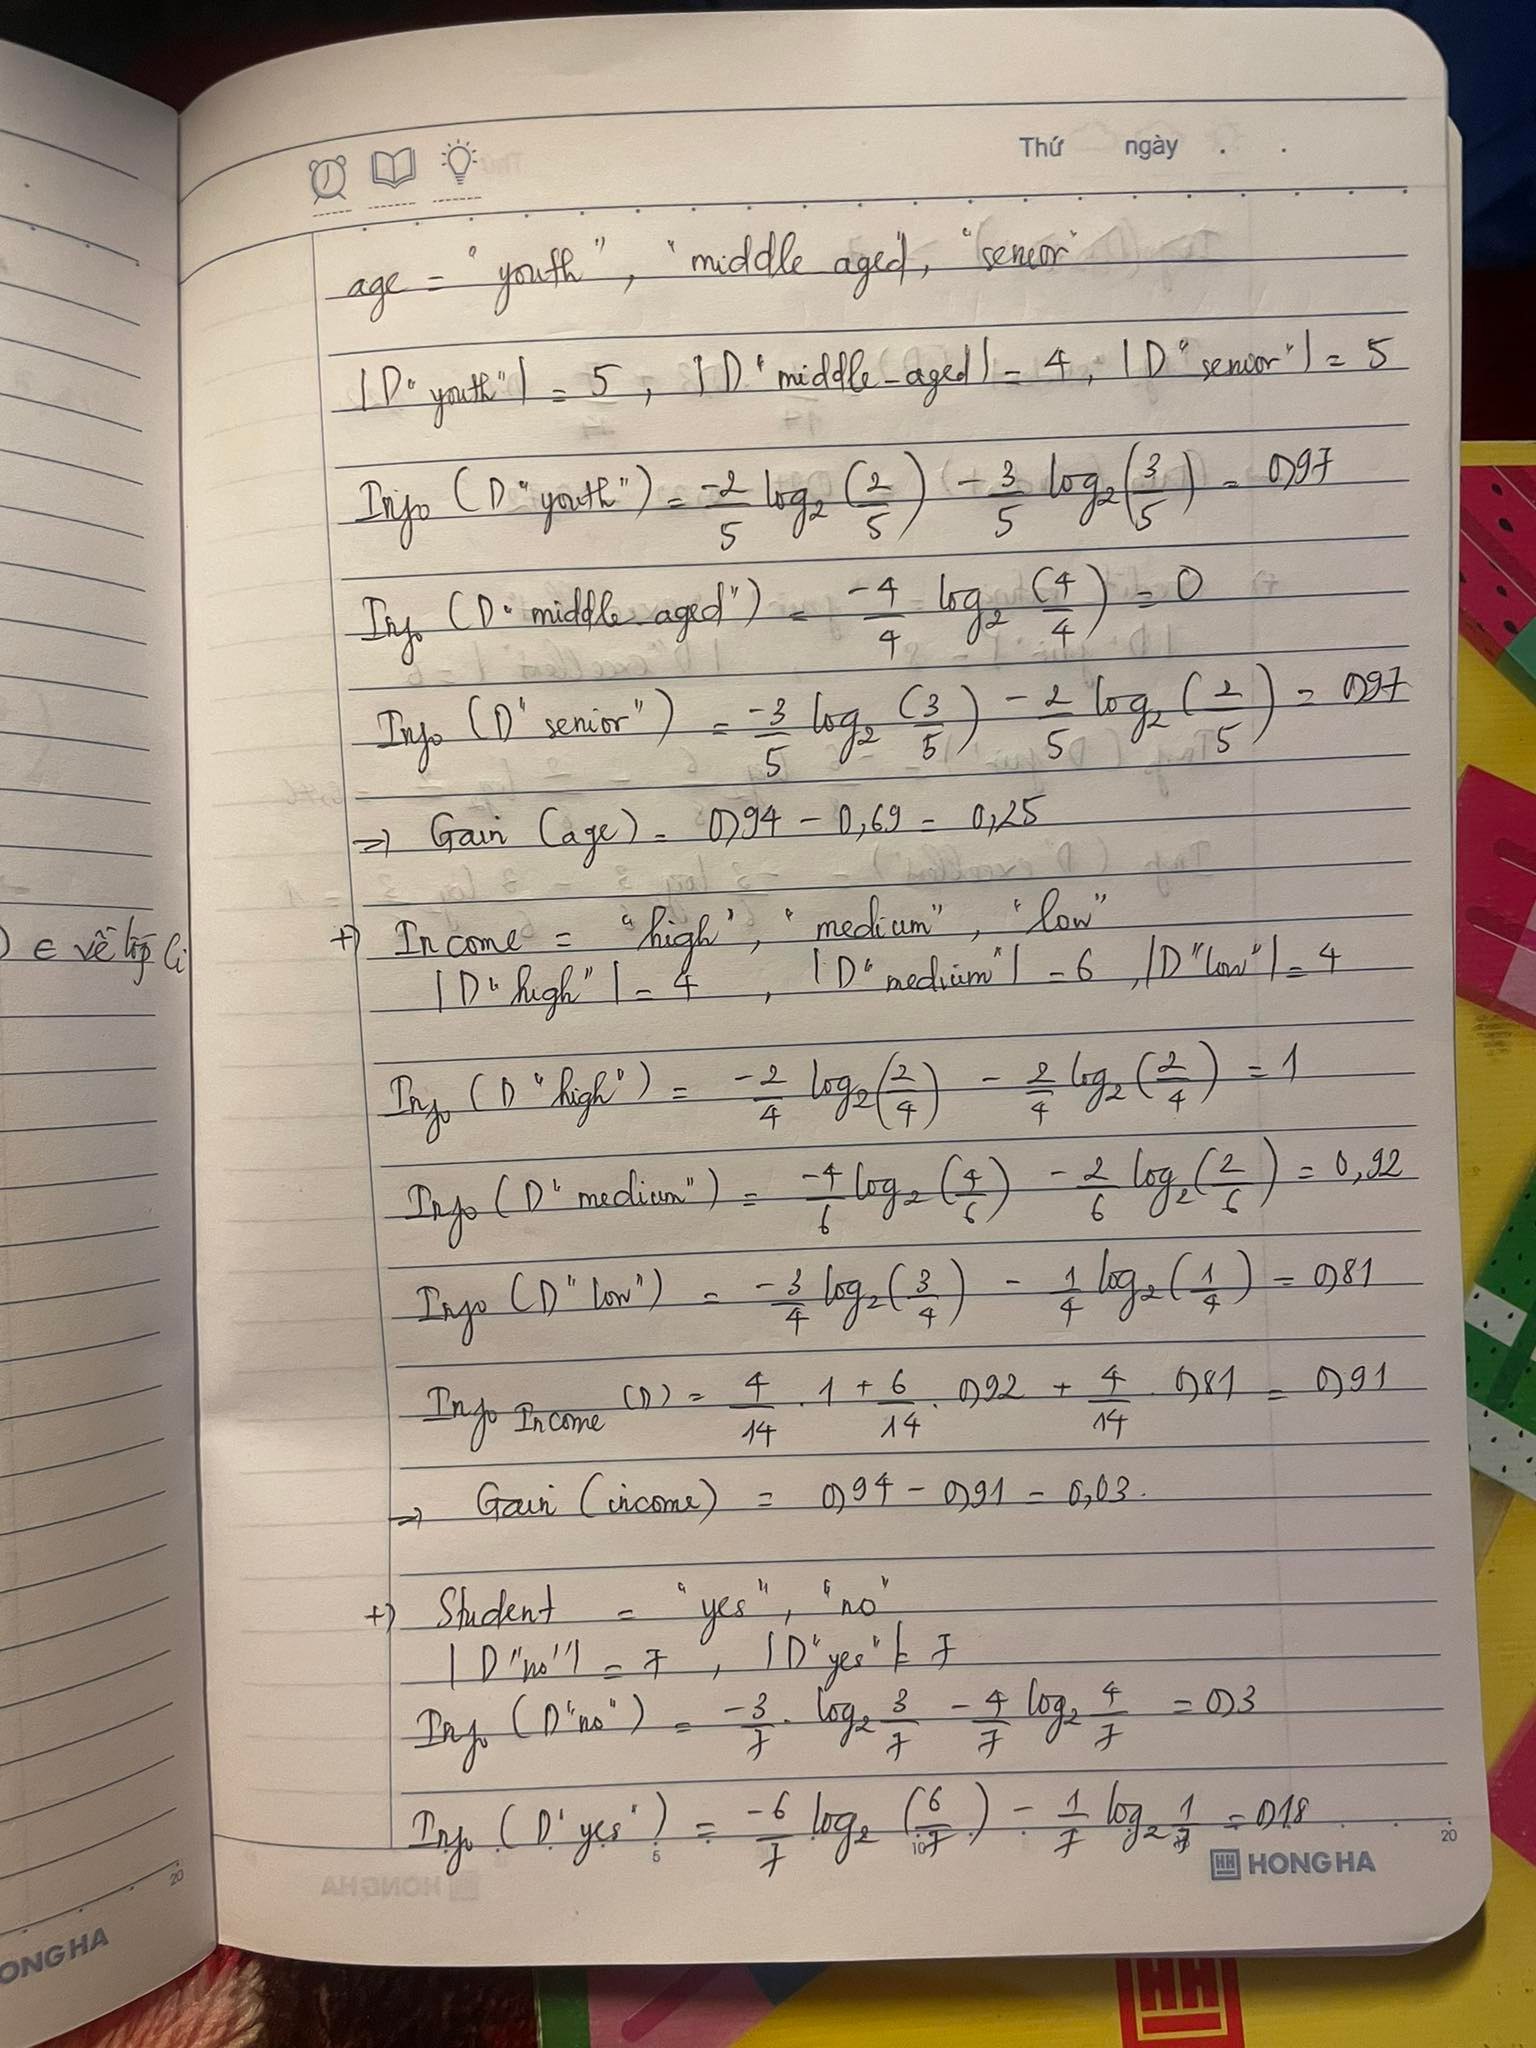 Thứ ngày . .
age = "youth", "middle aged", "senior"
|D"youth"| = 5, |D"middle-aged| = 4, |D"senior"| = 5
Info (D"youth") = -2/5 log₂(2/5) - 3/5 log₂(3/5) = 0,97
Info (D"middle-aged") = -4/4 log₂(4/4) = 0
Info (D"senior") = -3/5 log₂(3/5) - 2/5 log₂(2/5) = 0,97
=> Gain (age) = 0,94 - 0,69 = 0,25
+) Income = "high", "medium", "low"
|D"high"| = 4, |D"medium"| = 6, |D"low"| = 4
Info (D"high") = -2/4 log₂(2/4) - 2/4 log₂(2/4) = 1
Info (D"medium") = -4/6 log₂(4/6) - 2/6 log₂(2/6) = 0,92
Info (D"low") = -3/4 log₂(3/4) - 1/4 log₂(1/4) = 0,81
Info Income (D) = 4/14 . 1 + 6/14 . 0,92 + 4/14 . 0,81 = 0,91
=> Gain (income) = 0,94 - 0,91 = 0,03.
+) Student = "yes", "no"
|D"no"| = 7, |D"yes"| = 7
Info (D"no") = -3/7 . log₂ 3/7 - 4/7 log₂ 4/7 = 0,3
Info (D"yes") = -6/7 log₂(6/7) - 1/7 log₂ 1/7 = 0,18
5 10 20
HH HONG HA
) ∈ về lớp Ci
20
ONG HA
HH